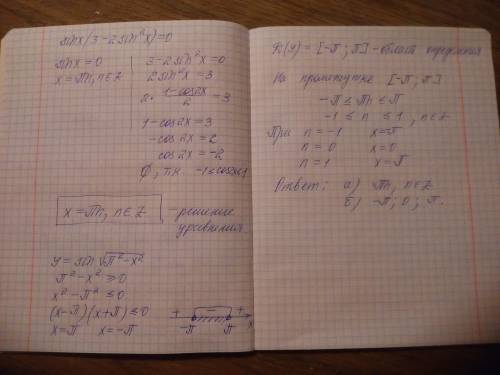 sinx(3-2sin²x)=0
sinx=0
x=πn, n∈Z
3-2sin²x=0
2sin²x=3
2·(1-cos2x)/2=3
1-cos2x=3
-cos2x=2
cos2x=-2
∅, т.к. -1≤cos2x≤1
x=πn, n∈Z - решение
уравнения
y=sin√(π²-x²)
π²-x²≥0
x²-π²≤0
(x-π)(x+π)≤0
x=π x=-π
+ - +
-π π x
D(y)=[-π;π] - область определения
На промежутке [-π;π]
-π≤πn≤π
-1≤n≤1, n∈Z
При n=-1 x=π
n=0 x=0
n=1 x=π
Ответ: а) πn, n∈Z
б) -π; 0; π.